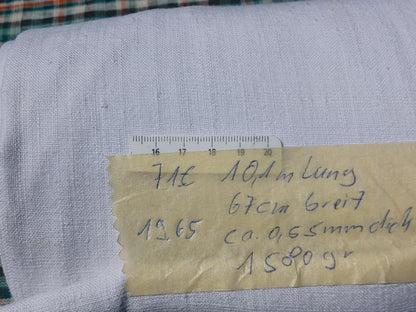 16 17 18 19 20
10,1m Lang
67cm breit
1965 ca. 0,55mm dick
1580 gr